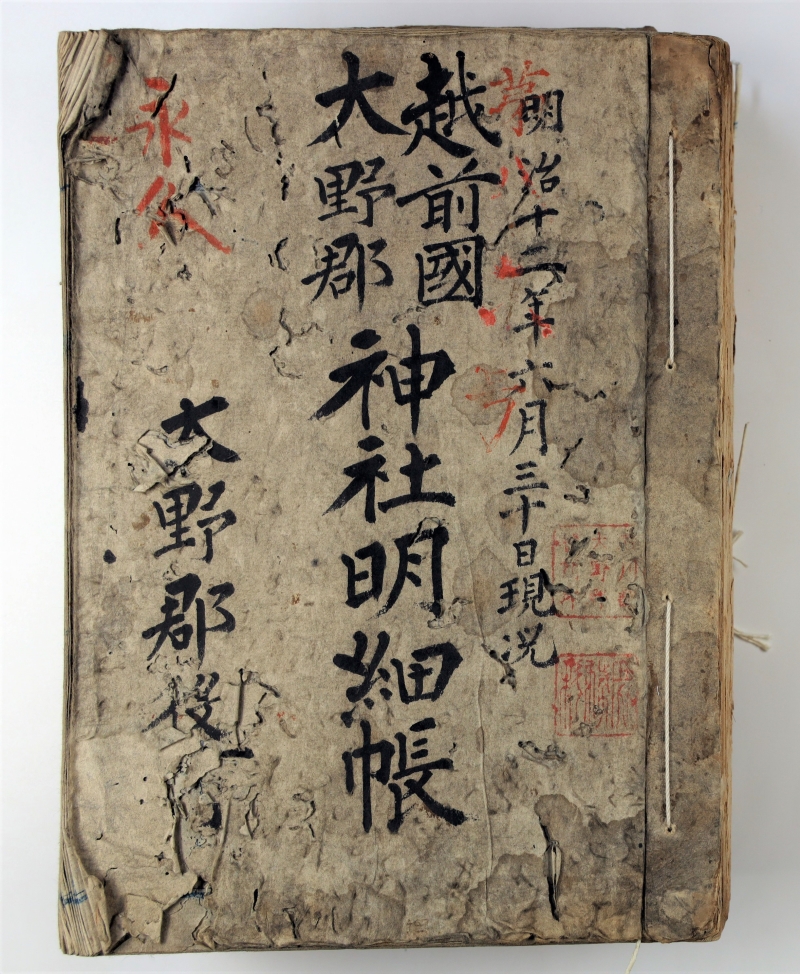 明治十二年六月三十日現況
越前國
大野郡
神社明細帳
大野郡役
永久